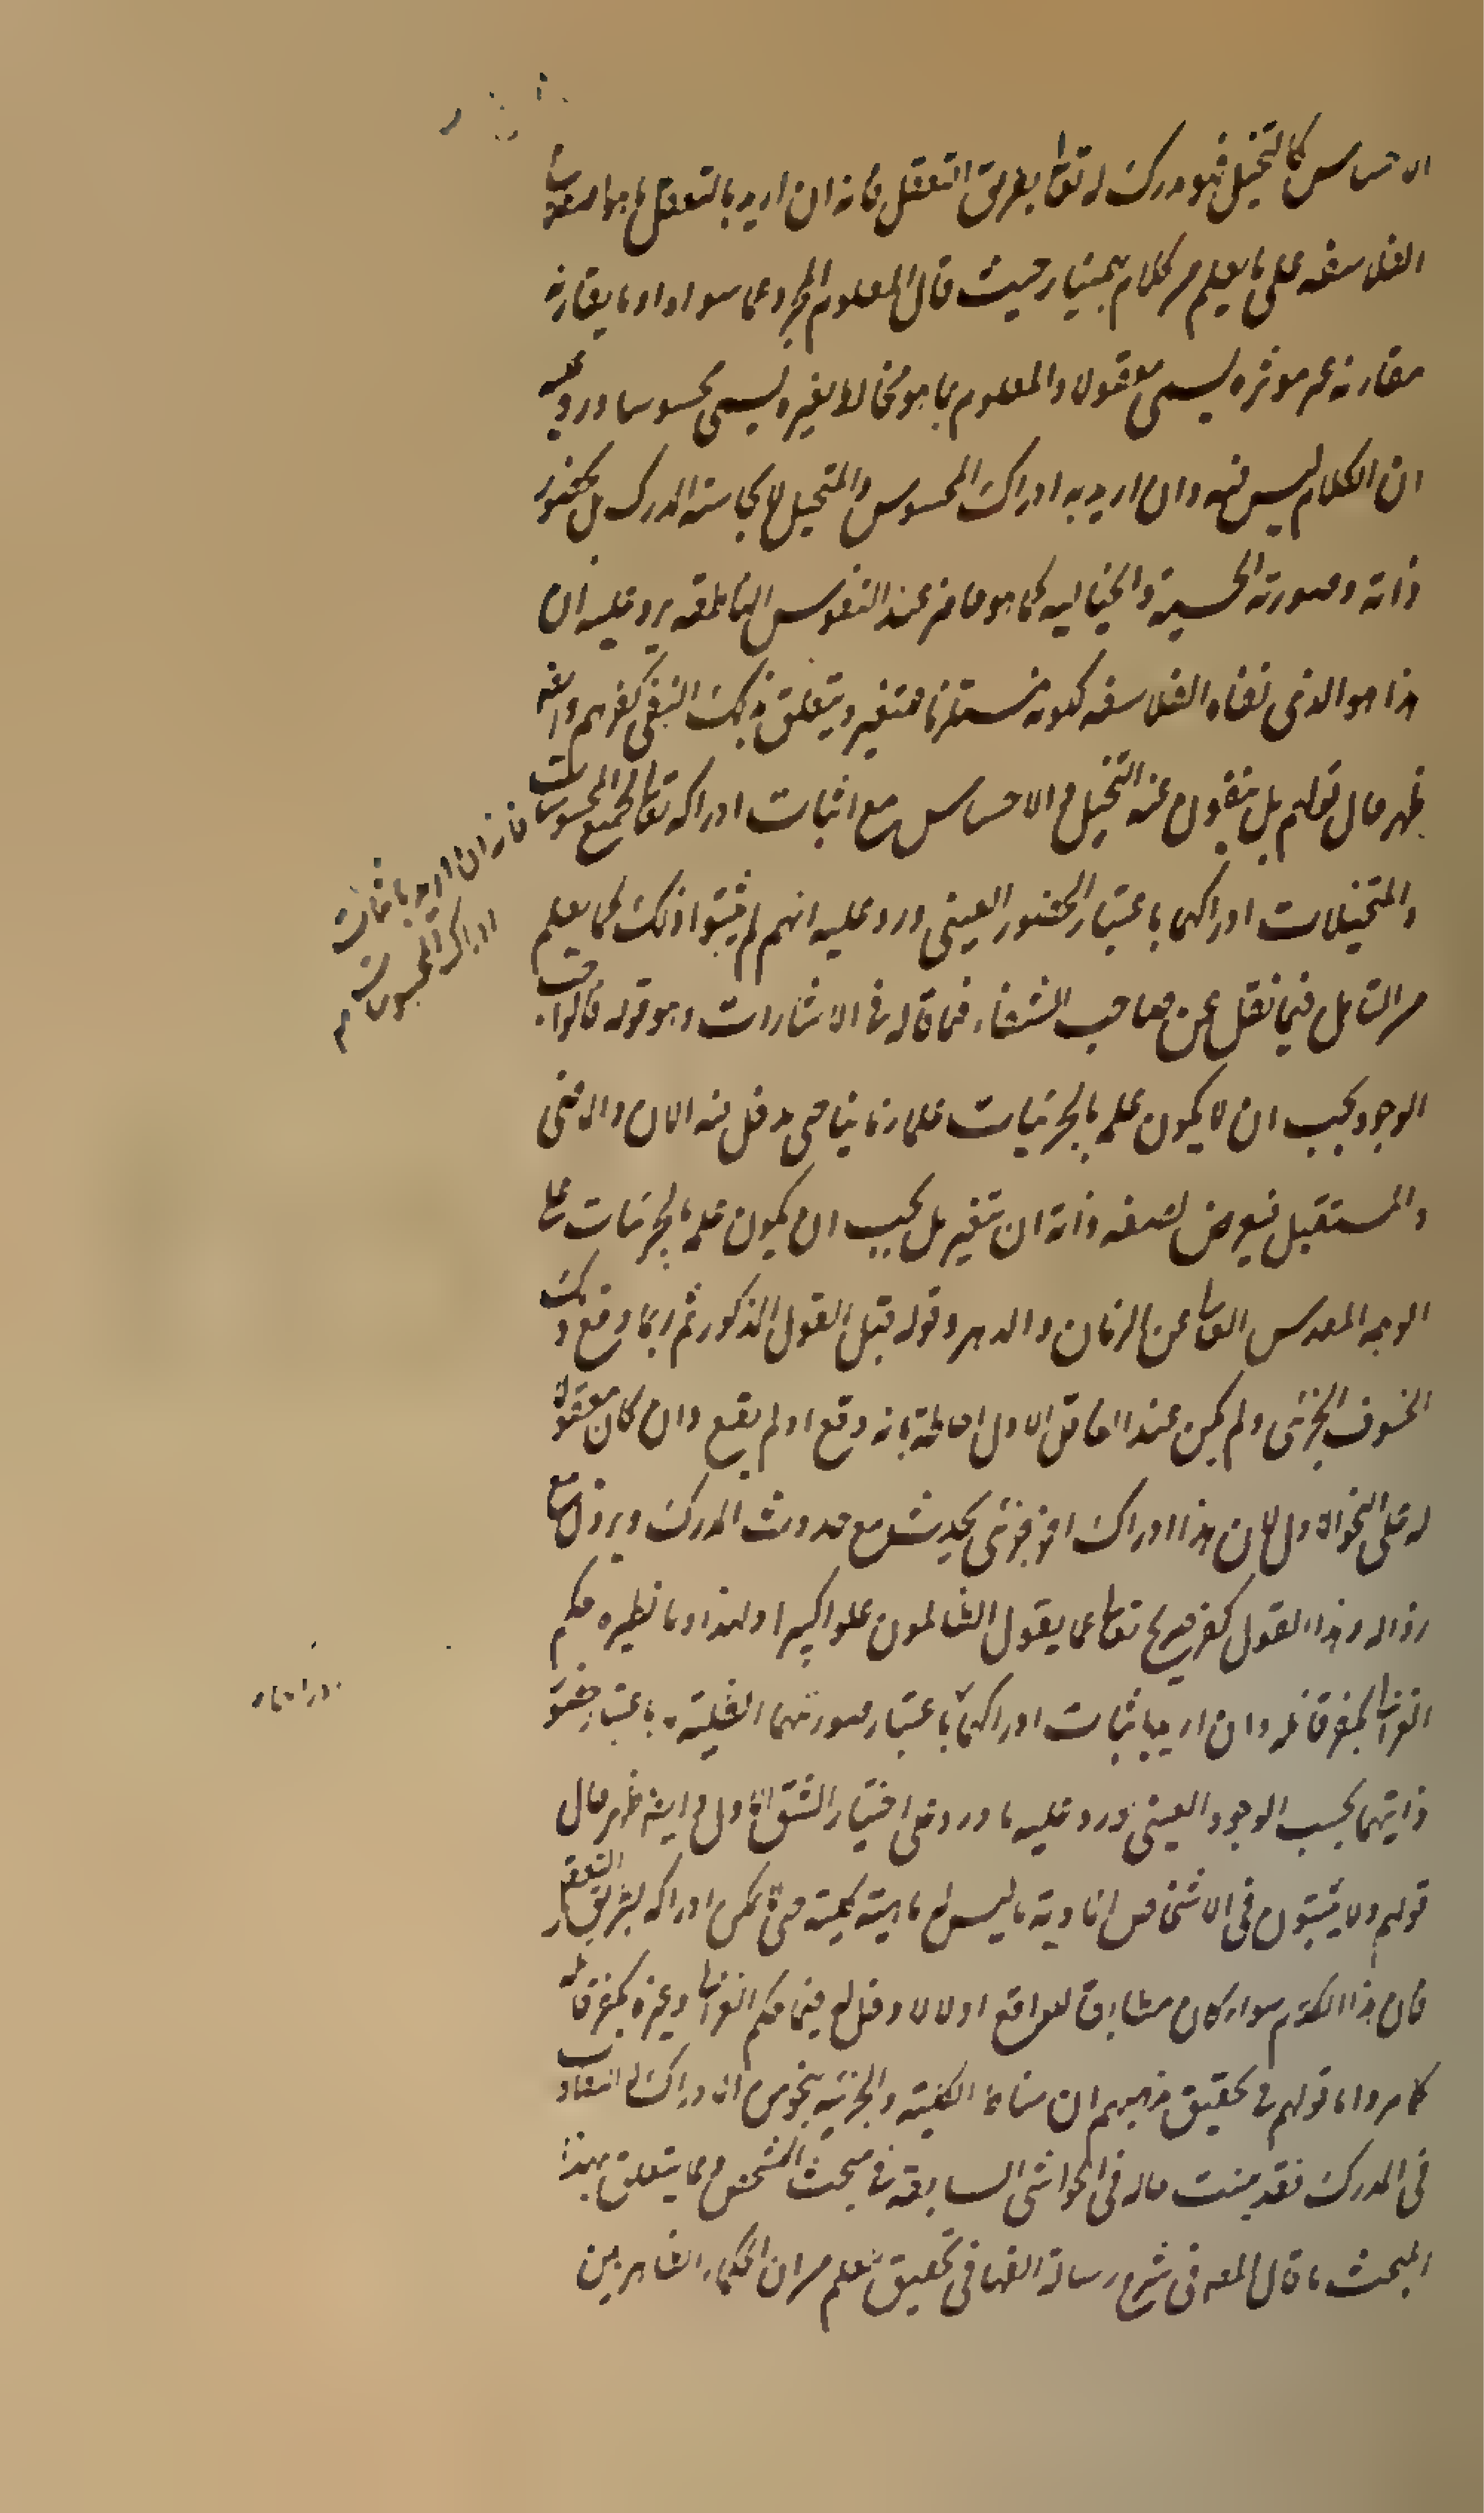 الاحساس كالتخيل فهو مدرك له تعالى بطريق التعقل فانه ان اريد بالتعقل ما هو مصطلح
الفلاسفه على ما يعلم من كلام بهمنيار حيث قال المعلوم المجرد عما سواه او ما يقارنه
مقارنه غير موثره يسمى معقولا والمعلوم بما هو مخالط بغيره يسمى محسوسا ورد عليه
ان الكلام ليس فيه وان اريد به ادراك المحسوس والمتخيل لا بحاسته المدرك بل بحضور
ذاته وصورته الحسية والخياليه كما هو حاضر عند النفوس الناطقه يرد عليه ان
هذا هو الذى نفاه الفلاسفه لكونه مستلزما للتغير ويتعلق بذلك النفى كفرهم وايضا
ظهر حال قولهم بل ينفون عنه التخيل والاحساس مع اثبات ادراكه تعالى لجميع المحسوسات
فانه ان اريد باثبات
ادراك المحسوسات م
والمتخيلات ادراكها باعتبار الحضور العينى ورد عليه انهم لم يثبتوا ذلك كما يعلم
من التامل فيما نقل عن صاحب الشفاء فما قاله فى الاشارات وهو قوله فالواجب
الوجود يجب ان لا يكون علمه بالجزئيات علما زمانيا حتى يدخل فيه الان والماضى
والمستقبل فيعرض لصفه ذاته ان تتغير بل يجب ان يكون علمه بالجزئيات على
الوجه المقدس العالى عن الزمان والدهر وقوله قبل القول المذكور ثم ربما وقع ذلك
الخسوف الجزئى ولم يكن عند العاقل الاول احاطة بانه وقع او لم يقع وان كان معقولا
له على النحو الاول لان هذا ادراك اخر جزئى يحدث مع حدوث المدرك ويزول مع
زواله وهذا القول كفر صريح تعالى عما يقول الظالمون علوا كبيرا ولهذا وما نظيره حكم
الغزالى بكفر قائله وان اريد باثبات ادراكهما باعتبار صورتهما العقلية لا باعتبار حضور
ذاتيهما بحسب الوجود العينى ورد عليه ما ورد على اختيار الشق الاول وايضا ظهر حال
قولهم ولا يثبتون فى الاشخاص المادية ما ليس له ماهية كلية حتى لا يمكن ادراكه بطريق التعقل
فان هذا الكلام سواء كان مطابقا للواقع او لا لا دخل له فيما حكم الغزالى وغيره بكفر قائله
كما مر واما قولهم فى تحقيق مذهبهم ان مناط الكلية والجزئية نحو من الادراك لا التفاوت
فى المدرك فقد بينت حاله فى الحواشى السابقه فى مبحث التشخص ومما يتعلق بهذا
المبحث ما قال المص فى شرح رسالة العلم فى تحقيق العلم من ان الحكماء الظاهريين